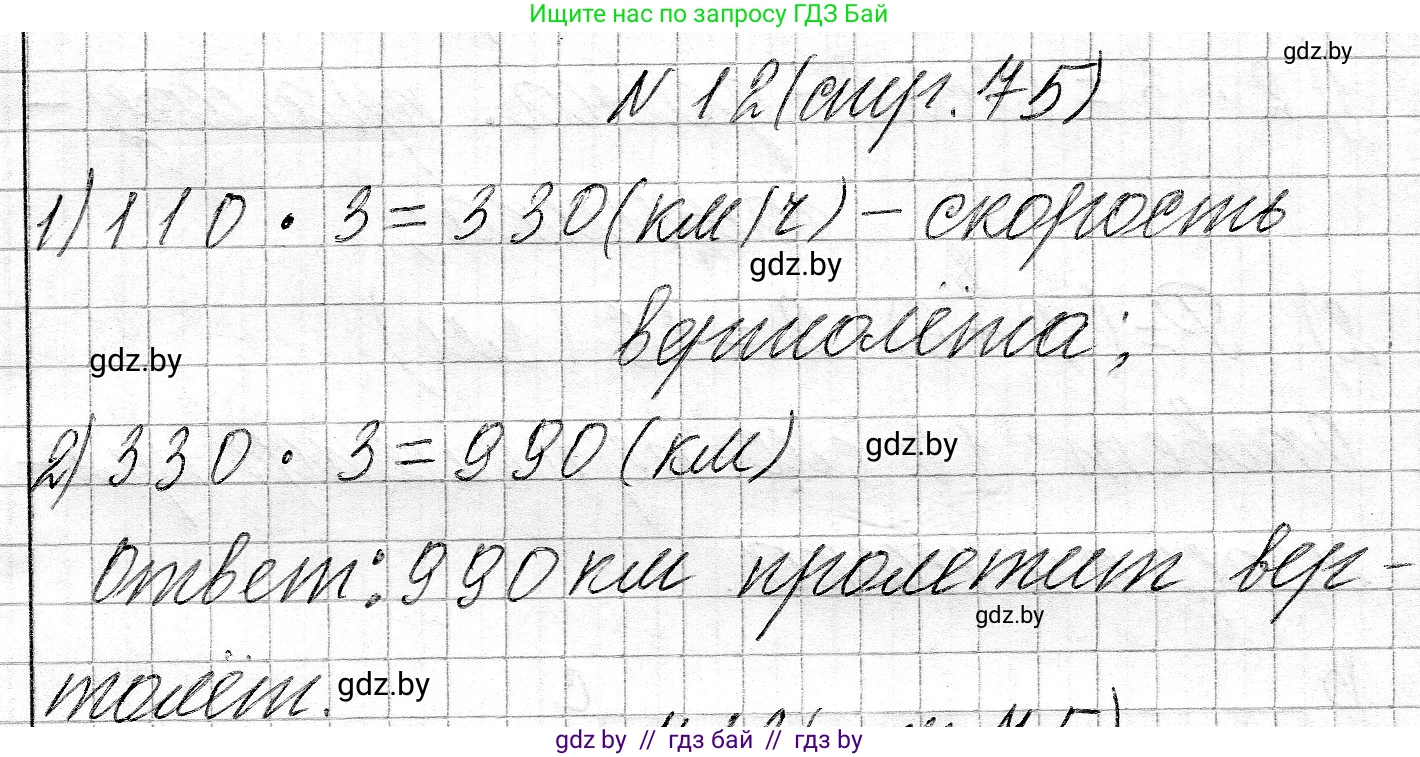 Ищите нас по запросу ГДЗ Бай
gdz.by
N 12 (стр. 75)
1) 110 · 3 = 330 (км/ч) – скорость
gdz.by
вертолёта;
gdz.by
2) 330 · 3 = 990 (км)
gdz.by
Ответ: 990 км пролетит вер-
gdz.by
толёт.
gdz.by
gdz by // гдз бай // гдз by